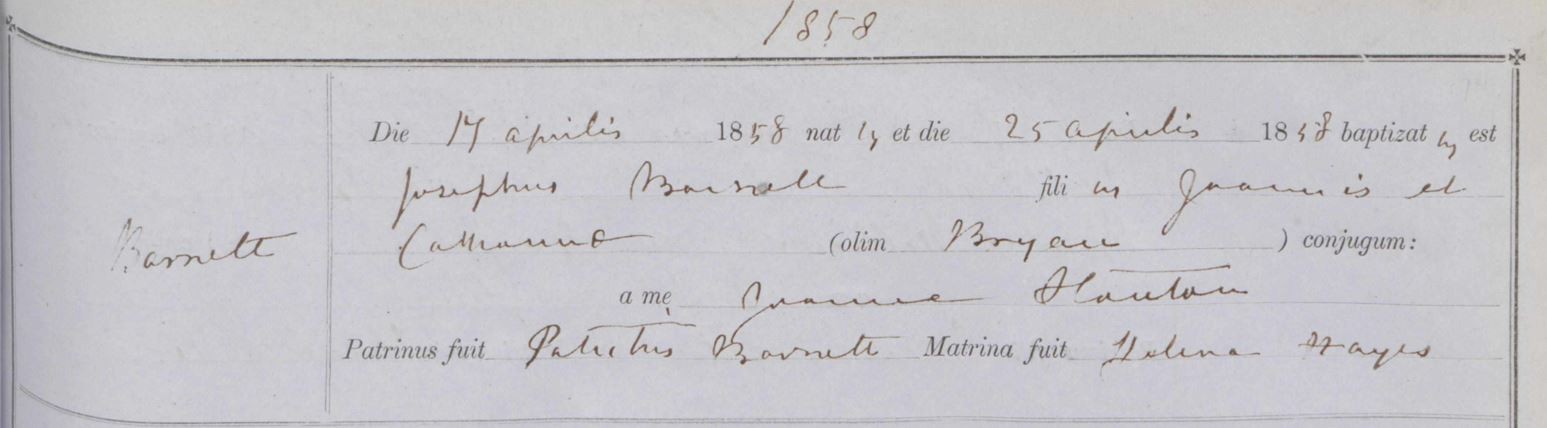 1858
Die 17 aprilis 1858 natus et die 25 aprilis 1858 baptizatus est
Josephus Barnett filius Joannis et
Barnett Catharina (olim Bryan) conjugum:
a me Joanne Stanton
Patrinus fuit Patritius Barnett Matrina fuit Helena Hayes